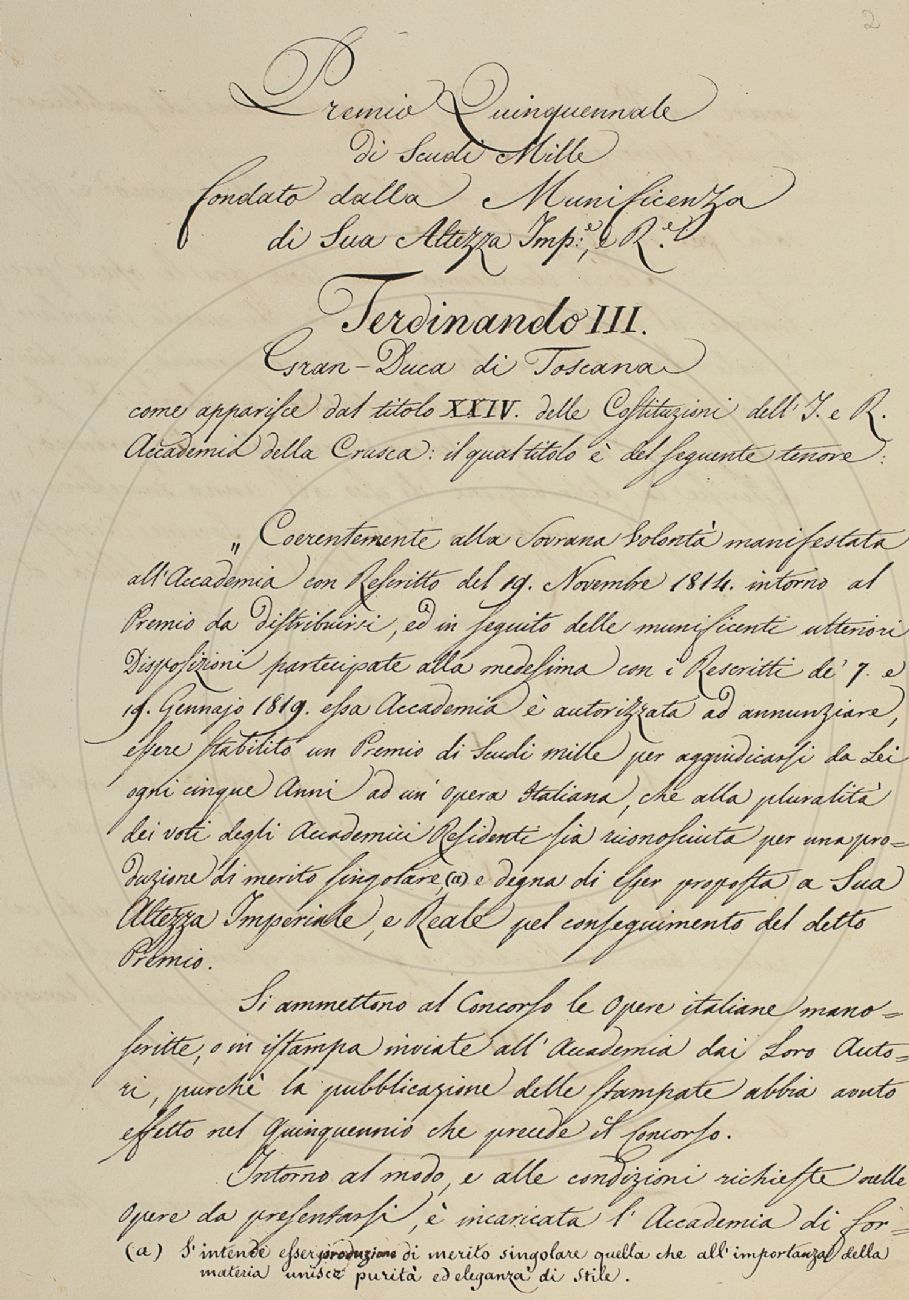 2
Premio Quinquennale
di Scudi Mille
fondato dalla Munificenza
di Sua Altezza Imp:e, e R.e
Ferdinando III.
Gran-Duca di Toscana
come apparisce dal titolo XXIV. delle Costituzioni dell' I. e R.
Accademia della Crusca: il qual titolo è del seguente tenore:
„ Coerentemente alla Sovrana Volontà manifestata
all'Accademia con Rescritto del 19. Novembre 1814. intorno al
Premio da distribuirsi, ed in seguito delle munificenti ulteriori
Disposizioni partecipate alla medesima con i Rescritti de' 7. e
19. Gennajo 1819. essa Accademia è autorizzata ad annunziare,
essere stabilito un Premio di Scudi mille per aggiudicarsi da Lei
ogni cinque Anni ad un' opera Italiana, che alla pluralità
dei voti degli Accademici Residenti sia riconosciuta per una pro=
duzione di merito singolare (a) e degna di esser proposta a Sua
Altezza Imperiale, e Reale pel conseguimento del detto
Premio.
Si ammettono al Concorso le Opere italiane mano=
scritte, o in istampa inviate all' Accademia dai Loro Auto=
ri, purchè la pubblicazione delle stampate abbia avuto
effetto nel Quinquennio che precede il Concorso.
Intorno al modo, e alle condizioni richieste nelle
Opere da presentarsi, è incaricata l' Accademia di for=
(a) S'intende esser produzione di merito singolare quella che all'importanza della
materia unisce purità ed eleganza di stile.